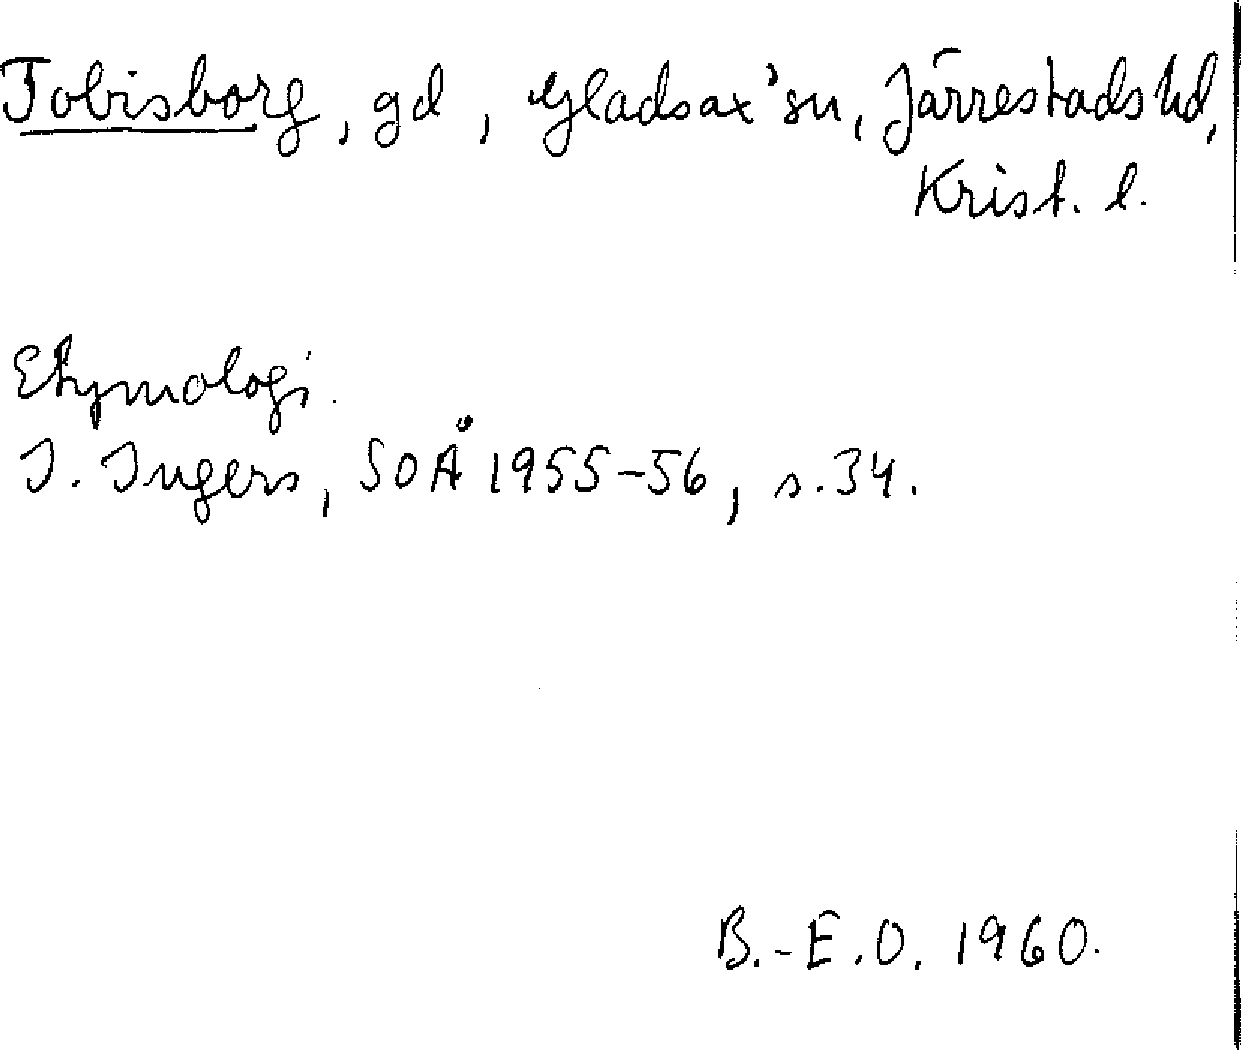 Tobisborg, gd, Gladsax' sn, Järrestads hd,
Krist. l.
Etymologi.
I. Ingers, SOÅ 1955-56, s. 34.
B.-E.O. 1960.